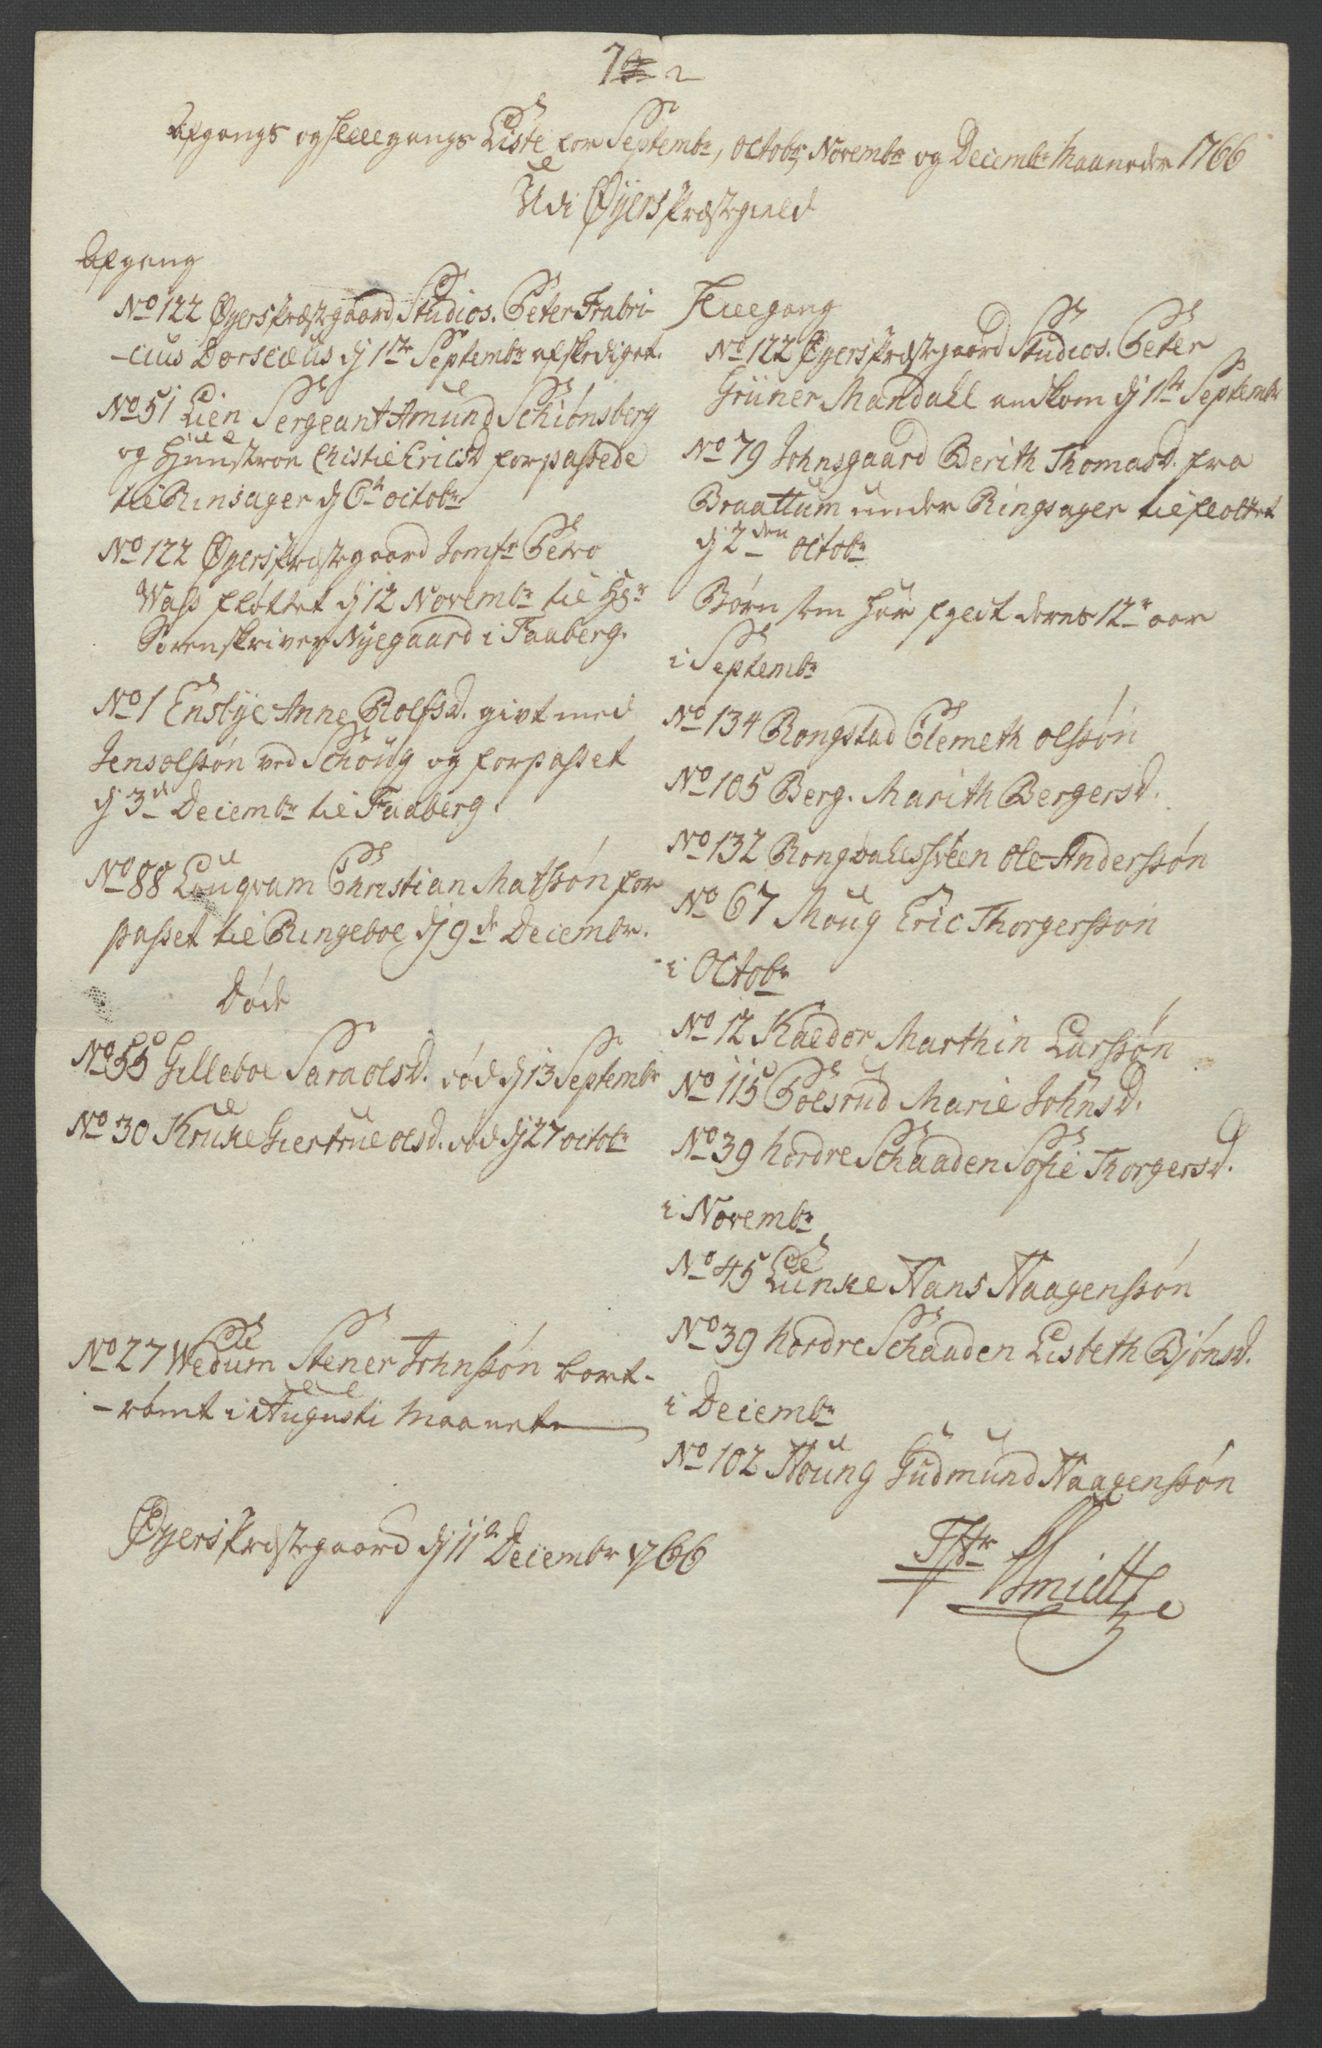 7
Afgangs og Tillegangs Liste for Septembr, Octobr, Novembr og Decembr Maaneder 1766
Udi Øyers Præstegield
Afgang
No 122 Øyers Præstegaard Studios. Peter Fabri-
-cius Dorscæus dj 1te Septembr afskediget.
No 51 Lien Sergeant Amund Schiønsberg
og Hunstroe Chistie Ericsd. forpassede
til Rinsager dj 6te Octobr
No 122 Øyers Præstegaard Jomfr Petro
Wass fløttet dj 12 Novembr til Hr
Sorenskriver Nyegaard i Faaberg.
No 1 Ensbye Anne Rolfsd. givt med
Jens Olssøn ved Schoug og forpasset
dj 3de Decembr til Faaberg.
No 88 Laugvam Christian Matssøn for
passet til Ringeboe dj 9de Decembr.
Døde
No 55 Gilleboe Sara Olsd. død dj 13 Septembr
No 30 Kruke Giertrue Olsd. død dj 27 Octobr
No 27 Wedum Stener Johnssøn bort-
-rømt i Augusti Maanet
Øyers Præstegaard dj 11te Decembr 1766
Tillegang
No 122 Øyers Præstegaard Studios. Peter
Grüner Mandall ankom dj 1te Septembr
No 79 Johnsgaard Berith Thomasd. fra
Braattum under Ringsager tilfløttet
dj 2den Octobr
Børn som har fyldt deres 12te aar
i Septembr
No 134 Rongstad Clemeth Olssøn
No 105 Berg. Marith Bergersd.
No 132 Rongvahlssveen Ole Anderssøn
No 67 Moug Eric Thorgerssøn
i Octobr
No 12 Kaldor Marthin Larssøn
No 115 Poelsrud Marie Johnsd.
No 39 Nordre Schaaden Sofie Thorgersd.
i Novembr
No 45 Lunke Hans Haagenssøn
No 39 Nordre Schaaden Lisbeth Bjönsd.
i Decembr
No 102 Houng Gudmund Haagenssøn
Smidth